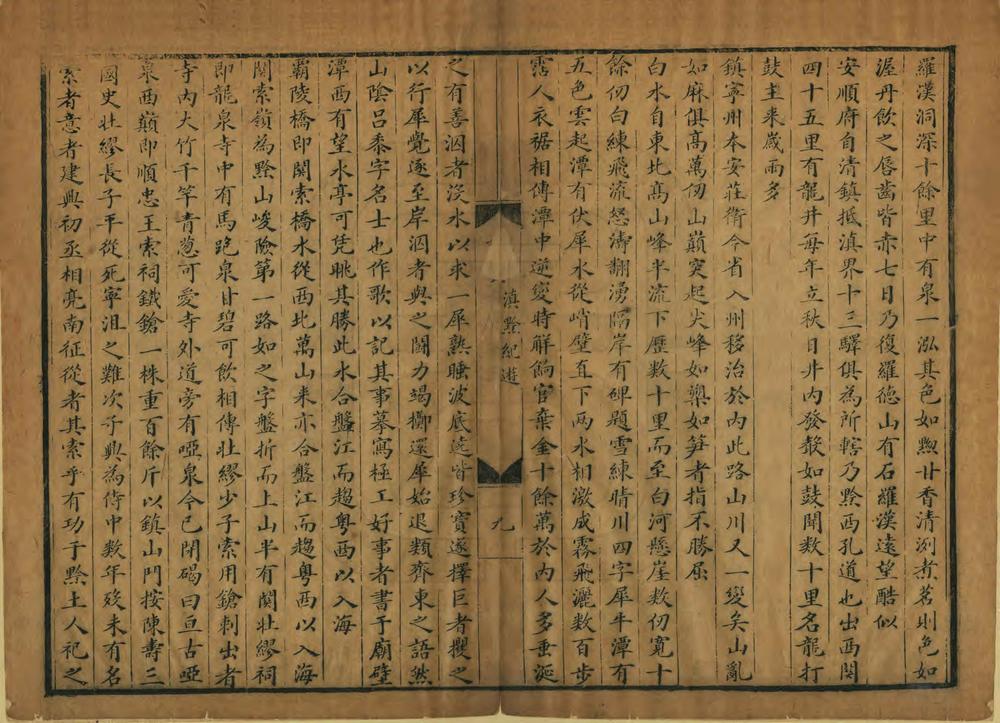 羅漢洞深十餘里中有泉一泓其色如㸃廿香清洌煮茗則色如
渥丹飲之唇齒皆赤七日乃復羅徳山有石羅漢遠望酷似
安順府自清鎮抵滇界十三驛俱為所轄乃黔西孔道也出西関
四十五里有龍井每年立秋日井内發聲如鼓聞数十里名龍打
鼓主来歲雨多
鎮寧州本安莊衛今省入州移治於内此路山川又一變矣山亂
如麻俱高萬仞山巔突起尖峰如㰖如笋者指不勝屈
白水自東北高山峰半流下歷数十里而至白河懸崖数仞寬十
餘仞白練飛流怒濤翻湧隔岸有碑題雪練晴川四字犀牛潭有
五色雲起潭有伏犀水從峭壁直下两水相激成霧飛灑数百步
霑人衣裾相傳潭中逆變時解餉官棄金十餘萬於内人多垂涎
滇黔紀遊
九
之有善泅者沒水以求一犀熟睡波底莚皆珍寳遂擇巨者攫之
以行犀覺逐至岸泅者與之鬭力竭擲還犀始退類齊東之語然
山陰呂黍字名士也作歌以記其事摹寫極工好事者書于廟壁
潭西有望水亭可凭眺其勝此水合盤江而趨粤西以入海
霸陵橋即関索橋水從西北萬山来亦合盤江而趨粤西以入海
関索嶺為黔山峻險第一路如之字盤折而上山半有関壮繆祠
即龍泉寺中有馬跑泉甘碧可飲相傳壮繆少子索用鎗刺出者
寺内大竹千竿青葱可愛寺外道旁有啞泉今已閉碣曰亘古啞
泉西巔即順忠王索祠鐵鎗一株重百餘斤以鎮山門按陳壽三
國史壮繆長子平從死寧沮之難次子興為侍中数年歿未有名
索者意者建興初丞相亮南征從者其索乎有功于黔土人祀之